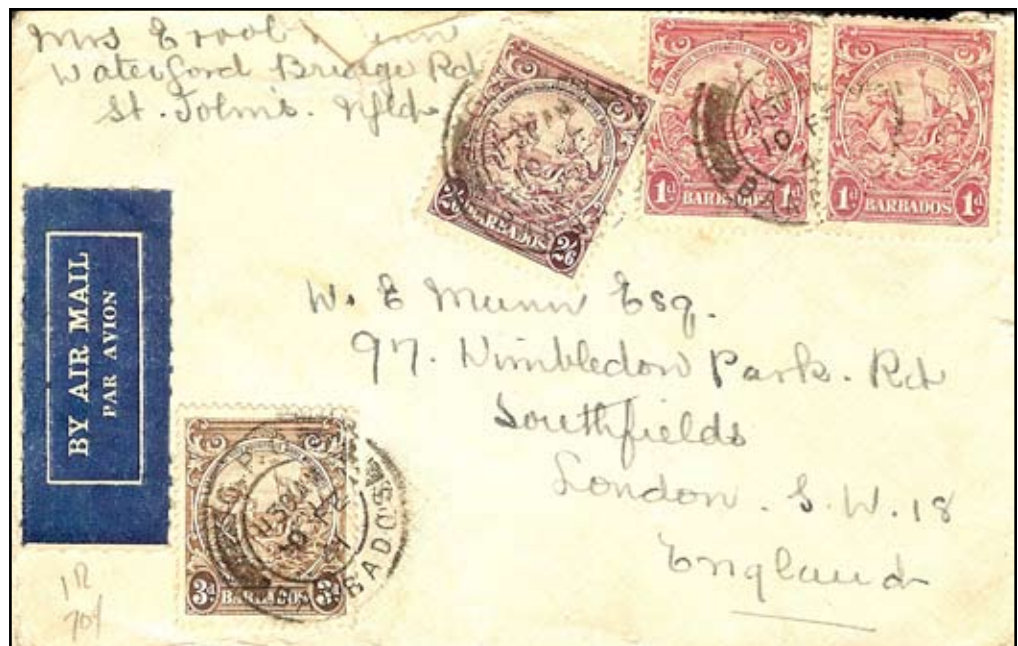 Mrs Errol Munn
Waterford Bridge Rd
St. John's. Nfld.
2/6 BARBADOS 2/6
1d BARBADOS 1d
1d BARBADOS 1d
BY AIR MAIL
PAR AVION
W. E Munn Esq.
97. Wimbledon Park. Rd
Southfields
London. S. W. 18
England
3d BARBADOS 3d
G.P.O.
BARBADOS
1130AM